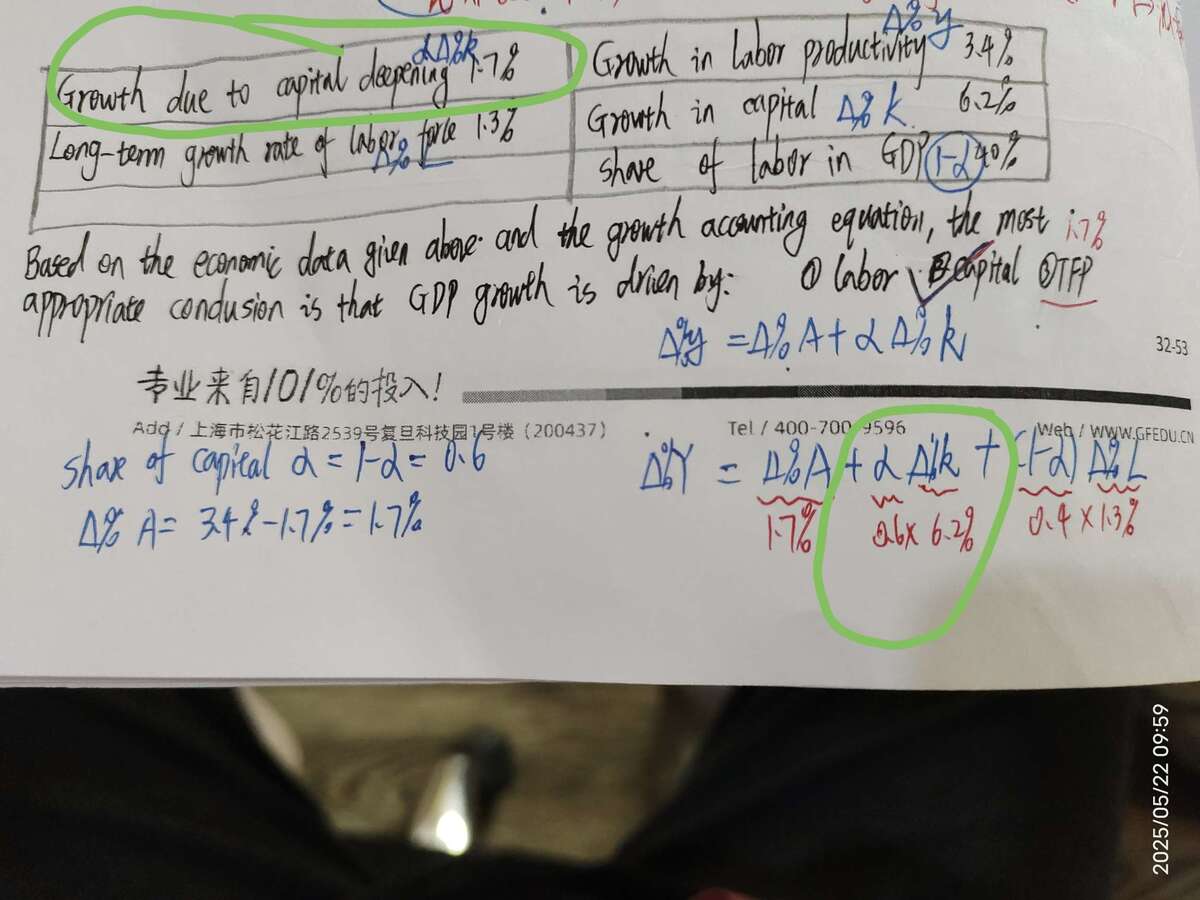 αΔ%k
Δ%y
Growth due to capital deepening 1.7%
Growth in labor productivity 3.4%
Long-term growth rate of labor force 1.3%
Δ%L
Growth in capital Δ%k 6.2%
share of labor in GDP 1-α 40%
Based on the economic data given above and the growth accounting equation, the most 1.7%
appropriate conclusion is that GDP growth is driven by: ① labor ② capital ③ TFP
Δ%y = Δ%A + α Δ%k
32-53
专业来自101%的投入!
Add / 上海市松花江路2539号复旦科技园1号楼 (200437) Tel / 400-700-9596 Web / WWW.GFEDU.CN
share of capital α = 1-α = 0.6
Δ%Y = Δ%A + α Δ%k + (1-α) Δ%L
Δ% A = 3.4% - 1.7% = 1.7%
1.7% 0.6 × 6.2% 0.4 × 1.3%
2025/05/22 09:59